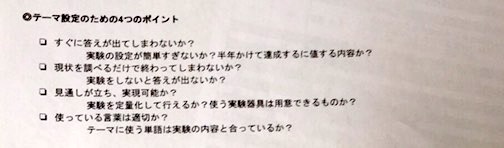 ◎テーマ設定のための4つのポイント
❏ すぐに答えが出てしまわないか？
実験の設定が簡単すぎないか？半年かけて達成するに値する内容か？
❏ 現状を調べるだけで終わってしまわないか？
実験をしないと答えが出ないか？
❏ 見通しが立ち、実現可能か？
実験を定量化して行えるか？使う実験器具は用意できるものか？
❏ 使っている言葉は適切か？
テーマに使う単語は実験の内容と合っているか？